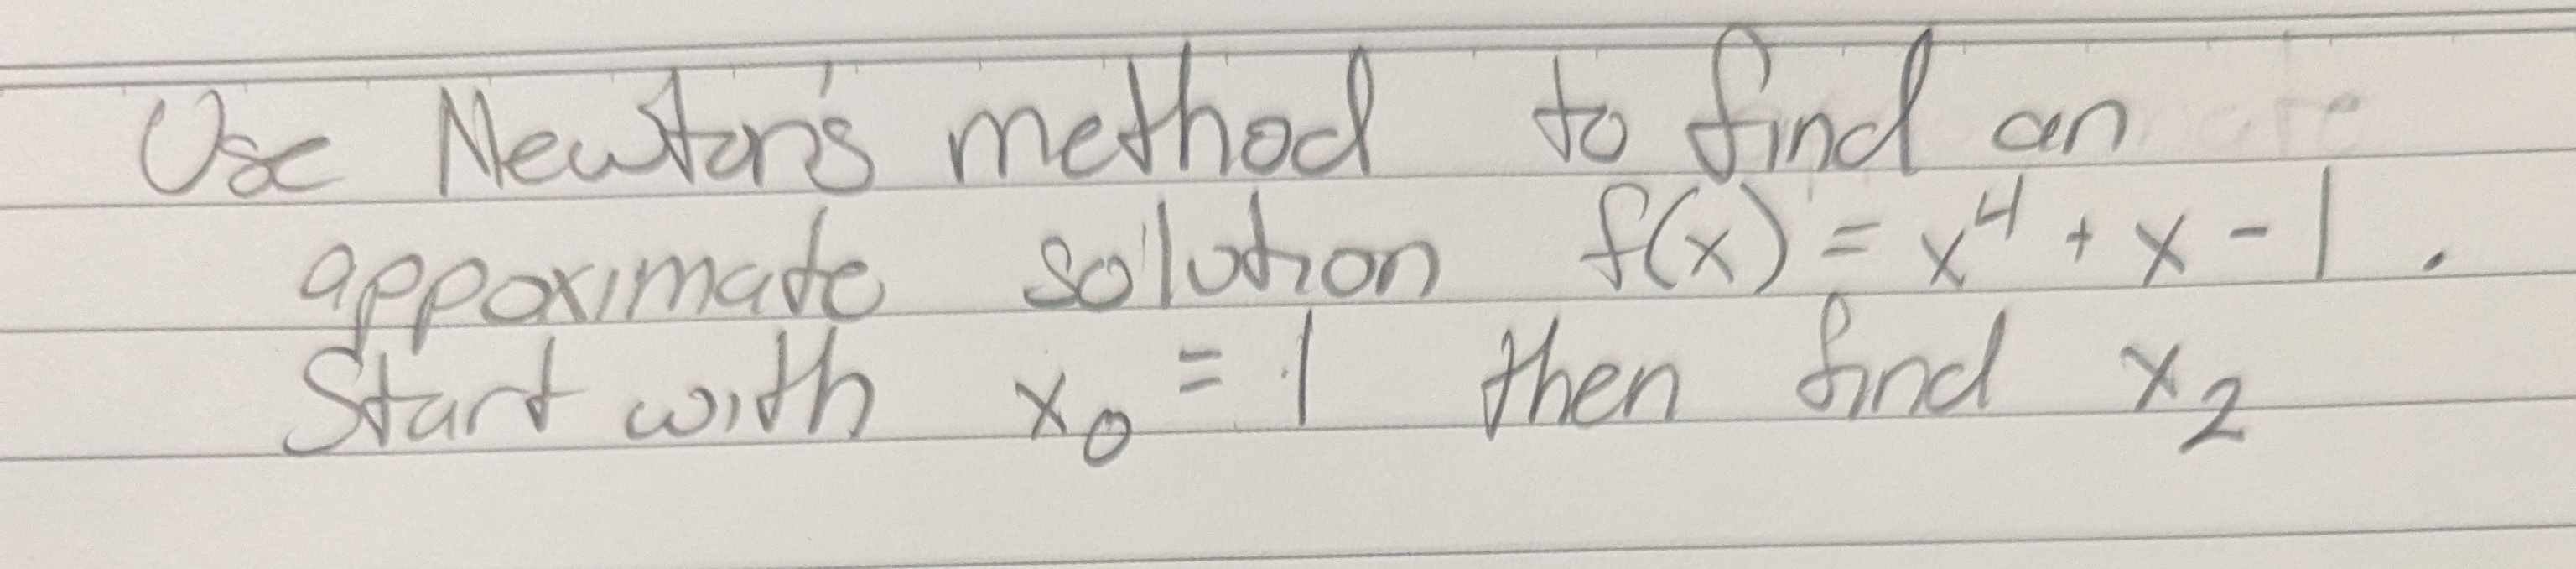 Use Newton's method to find an
appoximate solution f(x) = x⁴ + x - 1.
Start with x₀ = 1 then find x₂